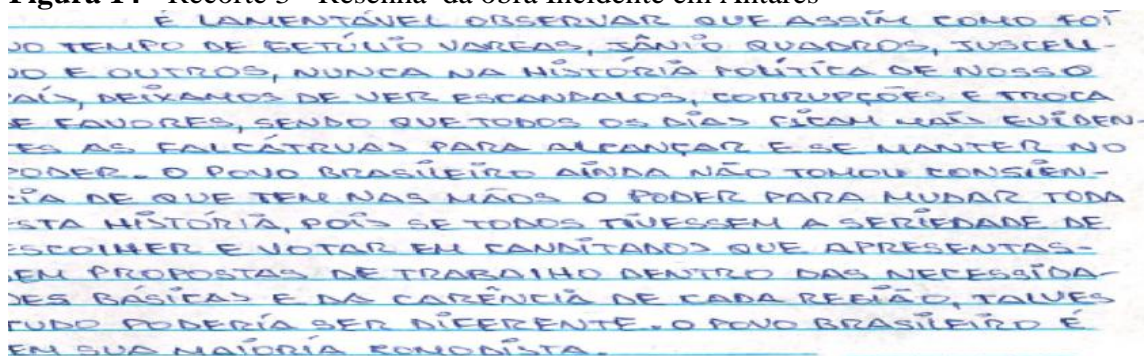 Figura 14 - Recorte 3 - Resenha da obra Incidente em Antares
É LAMENTÁVEL OBSERVAR QUE ASSIM COMO FOI
NO TEMPO DE GETÚLIO VARGAS, JÂNIO QUADROS, JUSCELI-
NO E OUTROS, NUNCA NA HISTÓRIA POLÍTICA DE NOSSO
PAÍS, DEIXAMOS DE VER ESCANDALOS, CORRUPÇÕES E TROCA
DE FAVORES, SENDO QUE TODOS OS DIAS FICAM MAIS EVIDEN-
TES AS FALCÁTRUAS PARA ALCANÇAR E SE MANTER NO
PODER. O POVO BRASILEIRO AINDA NÃO TOMOU CONSIÊN-
CIA DE QUE TEM NAS MÃOS O PODER PARA MUDAR TODA
ESTA HISTÓRIA, POIS SE TODOS TIVESSEM A SERIEDADE DE
ESCOLHER E VOTAR EM CANDITADOS QUE APRESENTAS-
SEM PROPOSTAS DE TRABALHO DENTRO DAS NECESSIDA-
DES BÁSICAS E DA CARÊNCIA DE CADA REGIÃO, TALVES
TUDO PODERIA SER DIFERENTE. O POVO BRASILEIRO É
EM SUA MAIORIA COMODISTA.